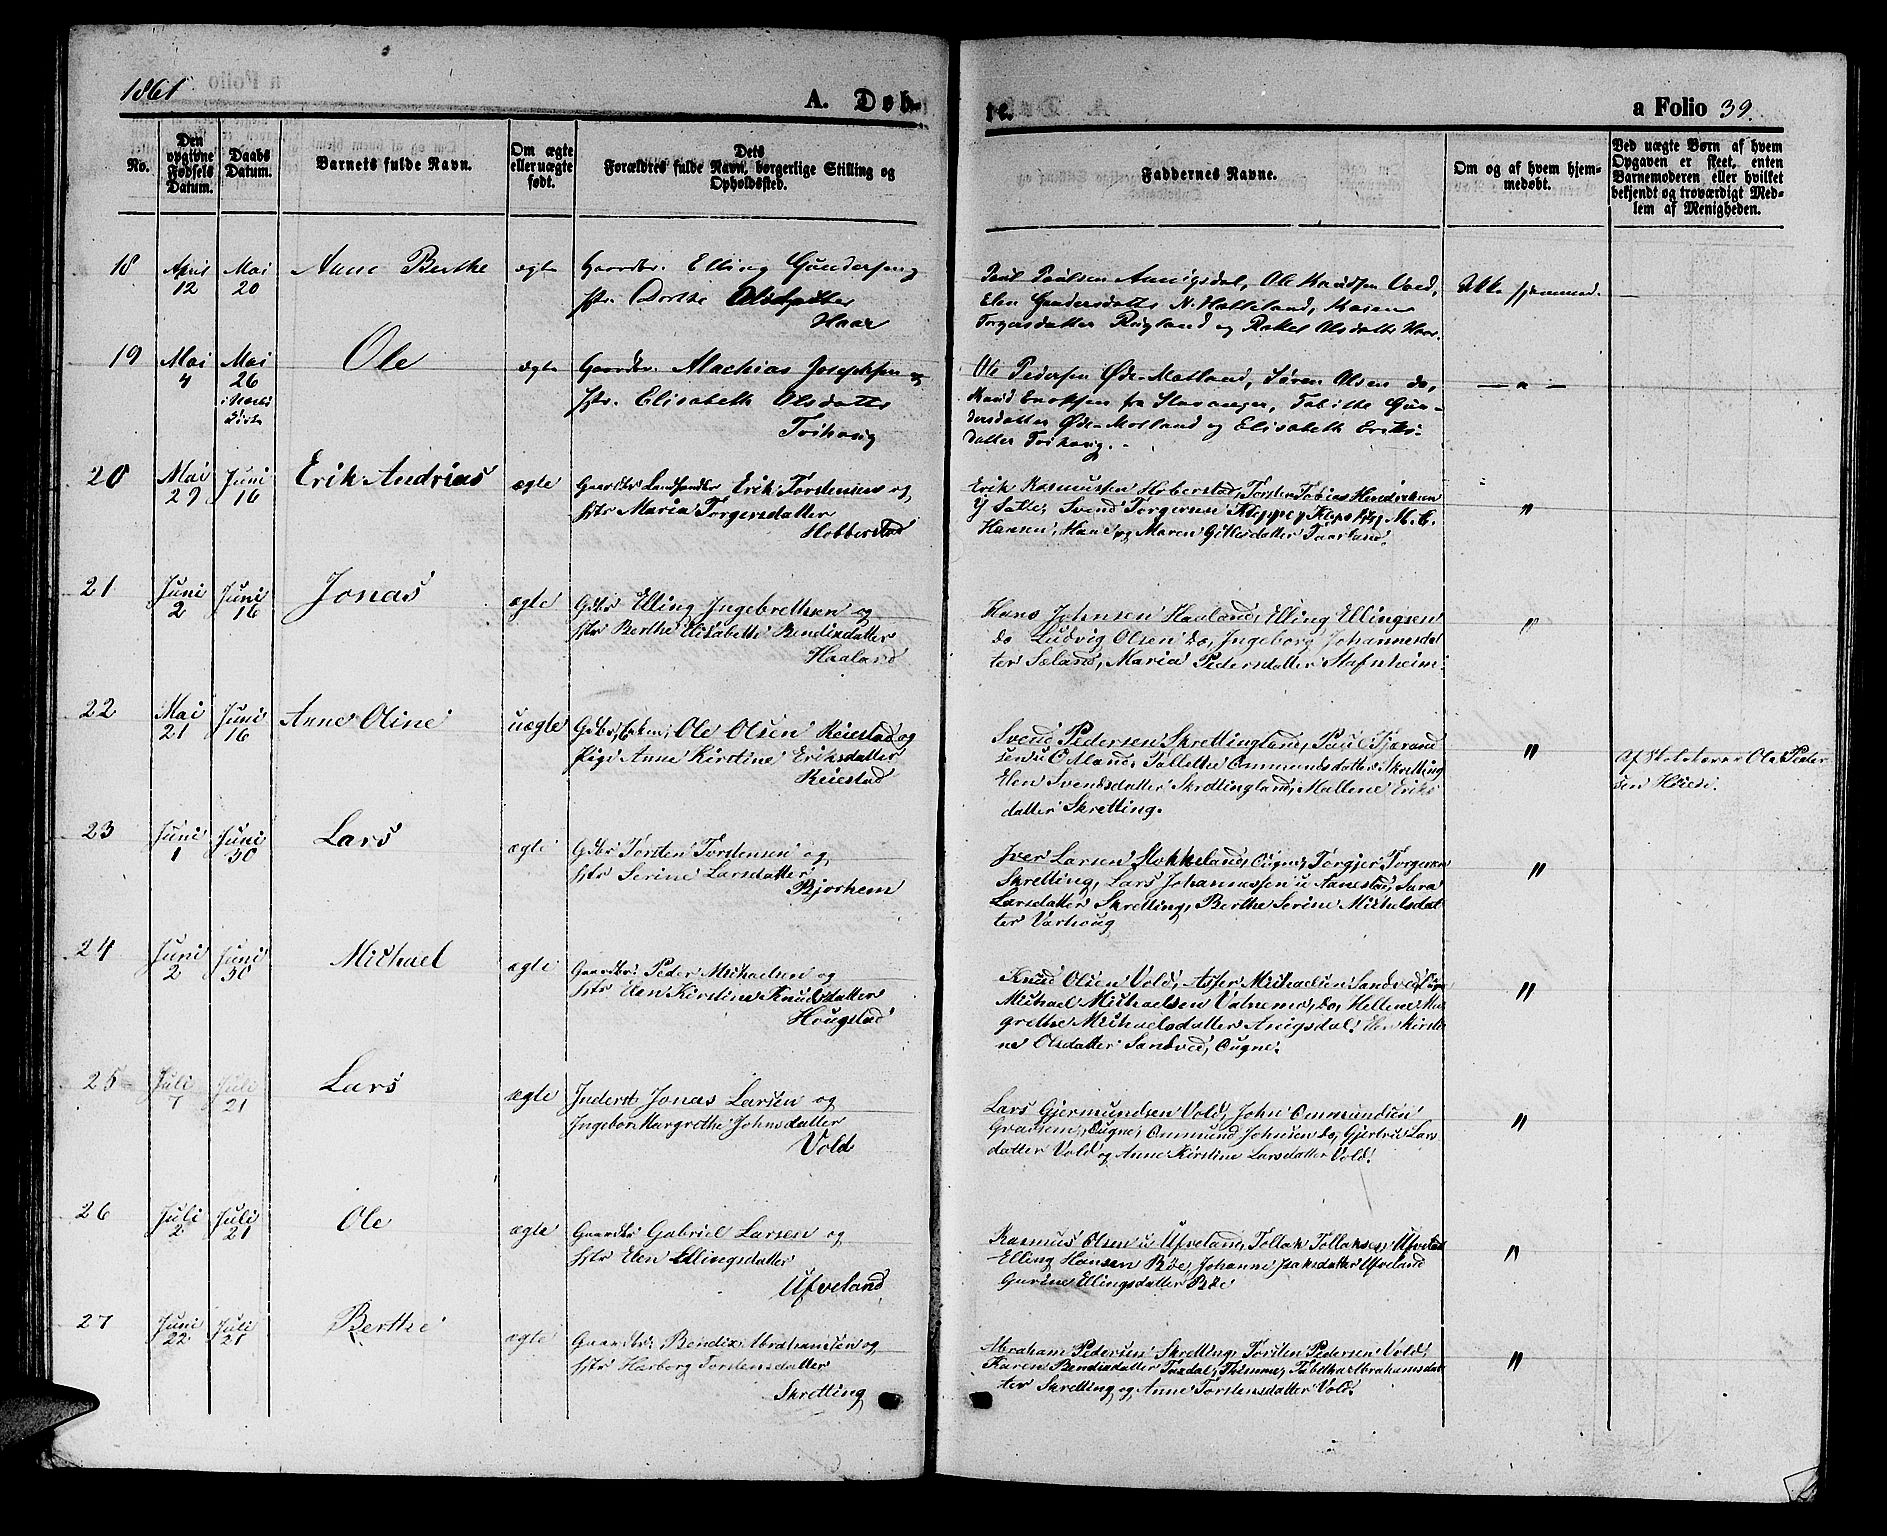 1861
A. Døb-
te.
a Folio 39.
No.
Den opgivne Fødsels Datum.
Daabs Datum.
Barnets fulde Navn.
Om ægte eller uægte født.
Dets Forældres fulde Navn, borgerlige Stilling og Opholdssted.
Faddernes Navne.
Om og af hvem hjemmedøbt.
Ved uægte Børn af hvem Opgaven er skeet, enten Barnemoderen, eller hvilket bekjendt og troværdigt Medlem af Menigheden.
18 April 12 Mai 20 Anne Berthe ægte Gaardbr. Elling Gundersen og
Hstr. Dorthe Olsdatter
Haar
Poul Poulsen Aunigsdal, Ole Knudsen Vold,
Elen Gundersdatter N. Hatleland, Karen
Torgersdatter Rugland og Rakel Olsdatter Haar.
Ikke hjemmed.
19 Mai 4 Mai 26 i Nærbø Kirke Ole ægte Gaardbr. Mathias Josephsen og
Hstr. Elisabeth Olsdatter
Tvihoug
Ole Pedersen Øde-Motland, Søren Olsen do,
Knud Eriksen fra Stavanger, Tabithe Gun-
dersdatter Øde-Motland og Elisabeth Eriks-
datter Tvihoug.
— " —
20 Mai 29 Juni 16 Erik Andrias ægte Gaardbr Landhandler Erik Torstensen og
Hstr Maria Torgersdatter
Hobberstad
Erik Rasmussen Hoberstad, Torsten Tobias Hendriksen
Salte, Svend Torgersen Kleppe, M. C.
Hansen, Hane og Maren Gitlesdatter Taarland.
"
21 Juni 2 Juni 16 Jonas ægte Gdbr Elling Ingebrethsen og
Hstr Berthe Elisabethe Bendixdatter
Haaland
Hans Johnsen Haaland, Elling Ellingsen
do Ludvig Olsen do, Ingeborg Johannesdat
ter Sæland, Maria Pedersdatter Stafnheim.
"
22 Mai 21 Juni 16 Anne Oline uægte Gdbr, Ole Olsen Reiestad og
Pige Anne Kirstine Eriksdatter
Reiestad
Svend Pedersen Skrettingland, Paul Tjørand
sen Tallethe Ommundsdatter Skretting
Elen Svendsdatter Skrettingland, Mallene Eriks
datter Skretting.
"
Af Skolelærer Ole Peder
sen Høiesi.
23 Juni 1 Juni 30 Lars ægte Gdbr Torsten Torstensen og
Hstr Serine Larsdatter
Bjorhem
Iver Larsen Stokkeland, Ougne, Torgjer Torgersen
Skretting, Lars Johannessen Aanestad, Sara
Larsdatter Skretting, Berthe Serine Michelsdat
ter Varhoug
"
24 Juni 2 Juni 30 Michael ægte Gaardbr: Peder Michaelsen og
Hstr Elen Kirstine Knudsdatter
Hougstad
Knud Olsen Vold, Asser Michaelsen Sandved,
Michael Michaelsen do, Hellene Mar
grethe Michaelsdatter Anigsdal, Elen Kirsti
ne Olsdatter Sandved, Ougne.
"
25 Juli 7 Juli 21 Lars ægte Inderst Jonas Larsen og
Ingebor Margrethe Johnsdatter
Vold
Lars Gjermundsen Vold, John Ommundsen
Gravsem, Ougne, Ommund Johnsen do, Gjertrud Lars
datter Vold og Anne Kirstine Larsdatter Vold.
"
26 Juli 2 Juli 21 Ole ægte Gaardbr Gabriel Larsen og
Hstr Elen Ellingsdatter
Ufveland
Rasmus Olsen Ufveland, Tollak Tollaksen Ufveland
Elling Hansen Bøe, Johanne Isaksdatter Ufveland
Gurine Ellingsdatter Bøe
"
27 Juni 22 Juli 21 Berthe ægte Gaardbr: Bendix Abrahamsen og
Hstr Herborg Torstensdatter
Skretting
Abraham Pedersen Skretting, Torsten Pedersen Vold,
Karen Bendixdatter Taxdal, Thimme, Tabitha Abrahamsdat
ter Skretting og Anne Torstensdatter Vold.
"